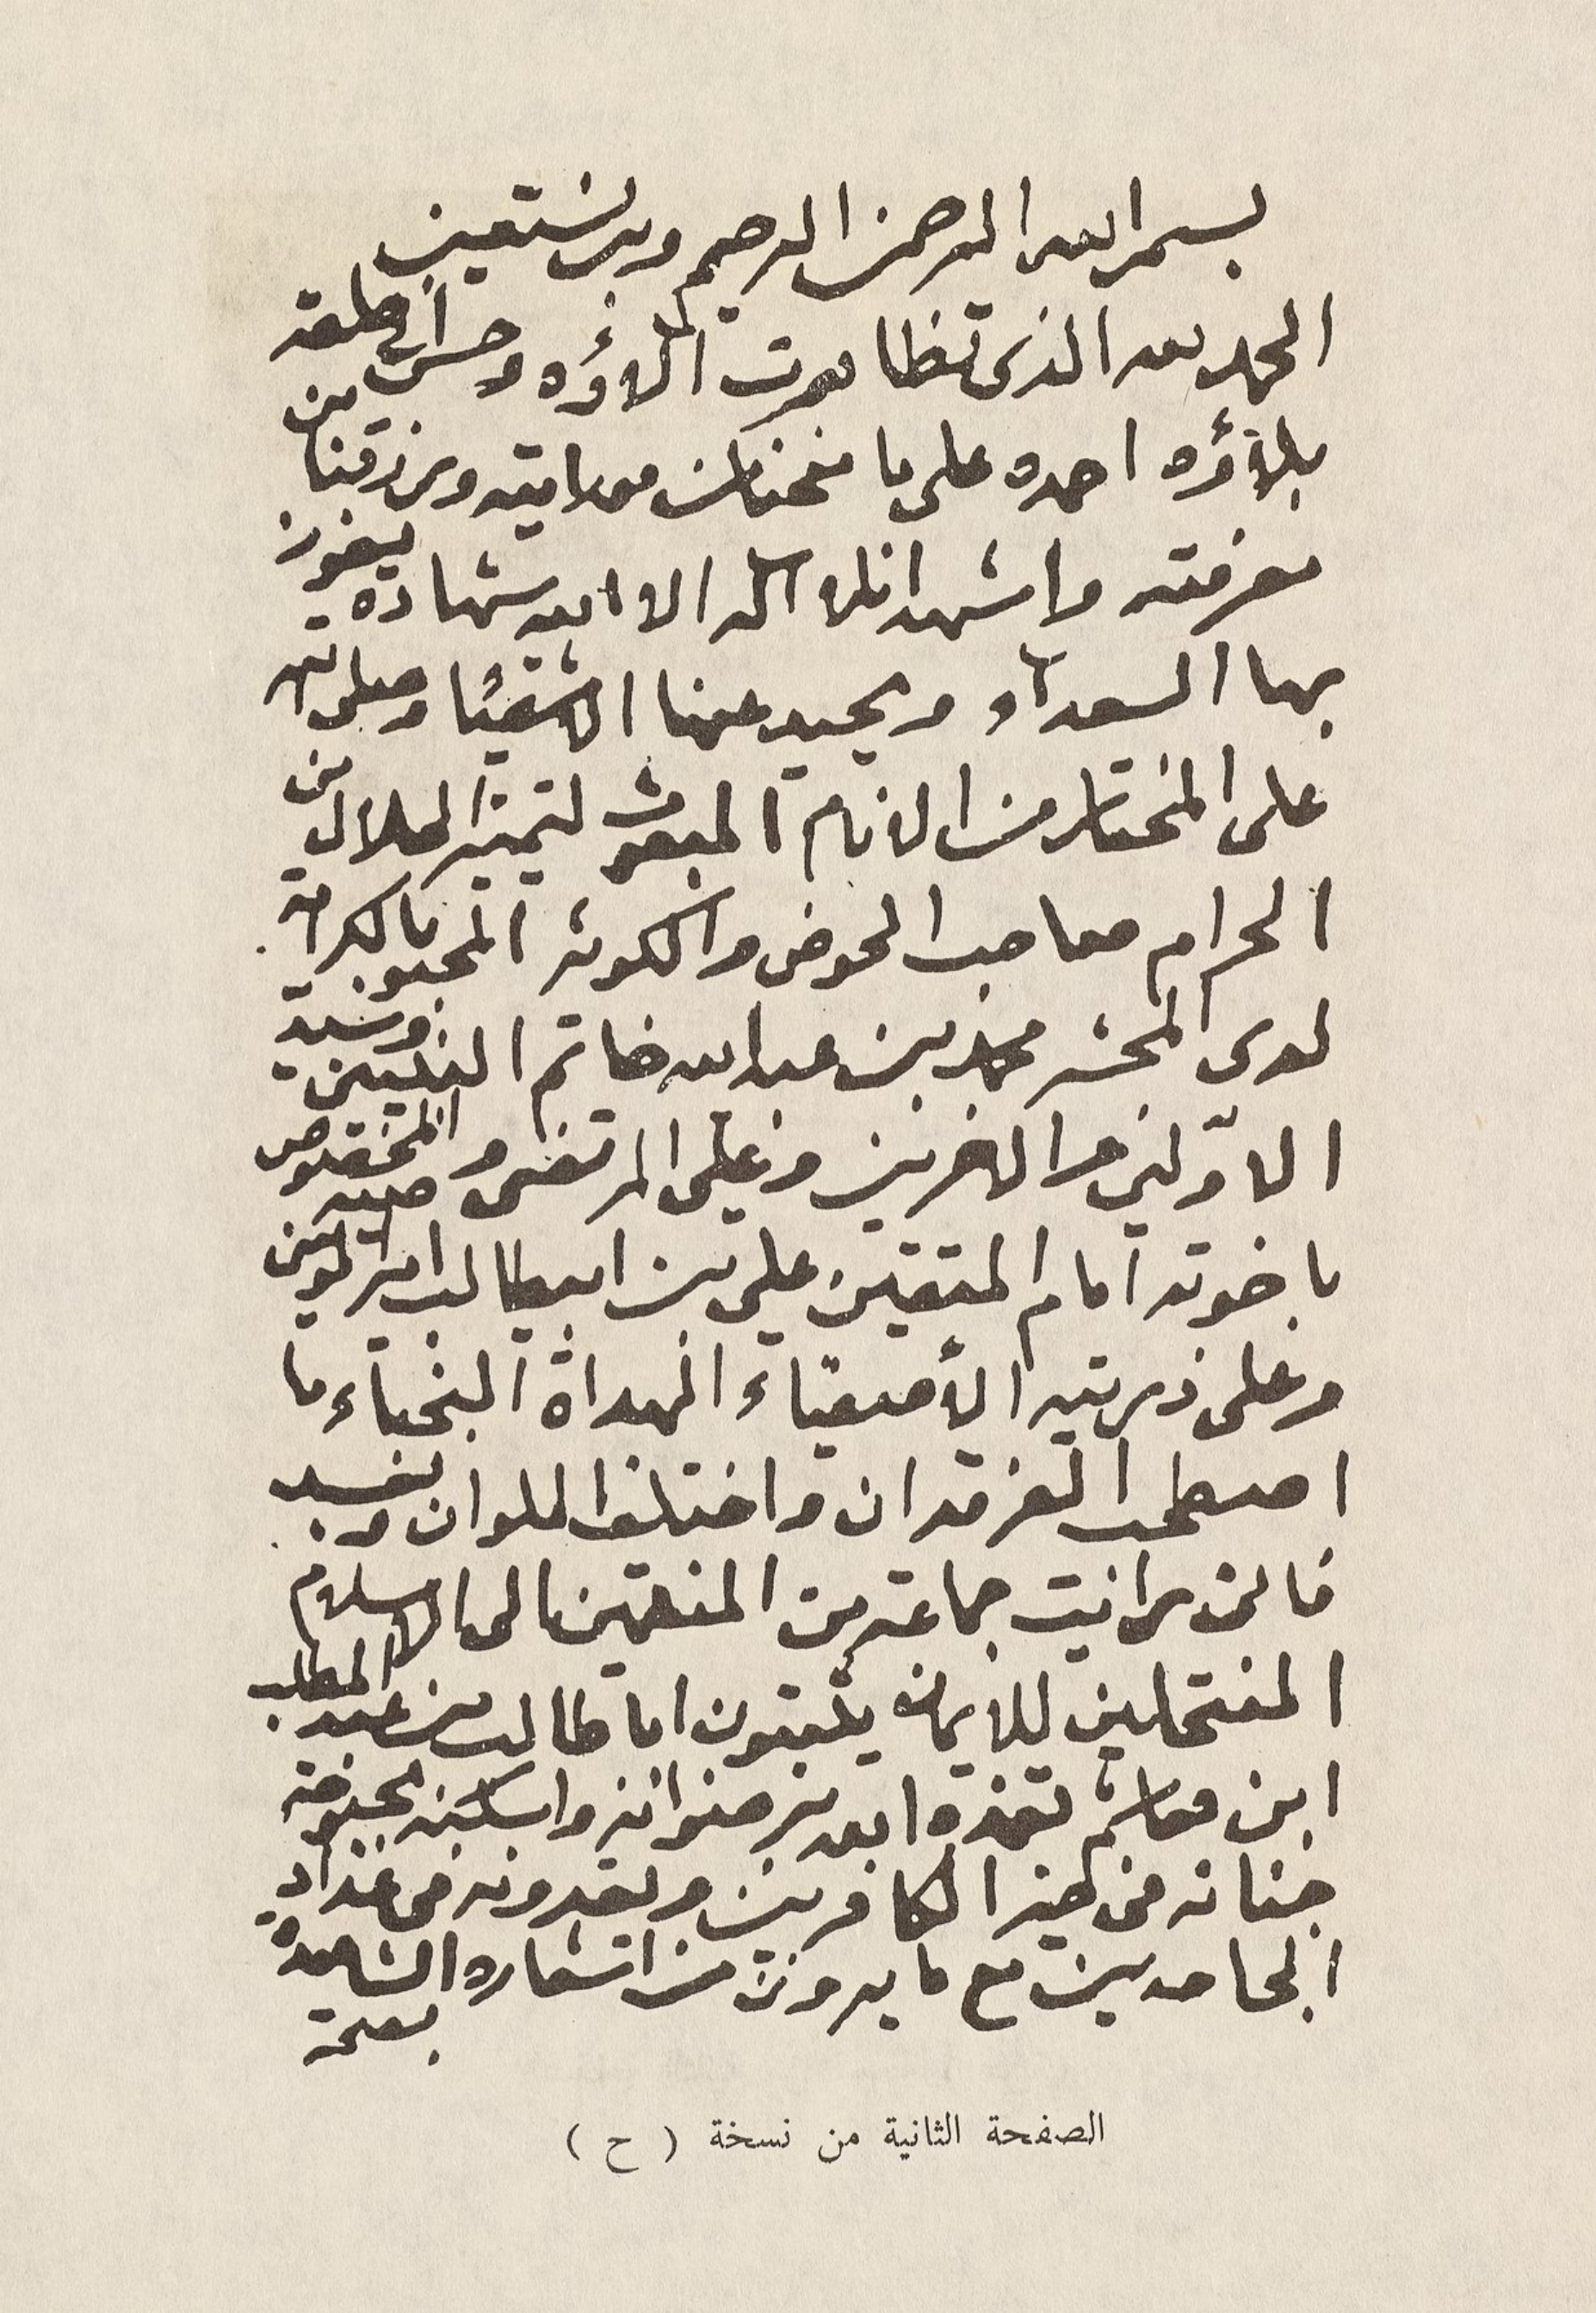 بسم الله الرحمن الرحيم وبه نستعين
الحمد لله الذى تظاهرت الاؤه وحسن الى خلقه
بلاؤه احمده على ما منحنا من هدايته ورزقنا من
معرفته واشهد ان لا اله الا الله شهادة يفوز
بها السعداء ويحيد عنها الاشقياء وصلى الله
على المختار من الانام المبعوث لتميز الحلال من
الحرام صاحب الحوض والكوثر المحبو بالكرامة
لدى المحشر محمد بن عبد الله خاتم النبيين وسيد
الاوّلين والاخرين وعلى المرتضى وصيه المخصوص
باخوته امام المتقين على بن ابيطالب امير المؤمنين
وعلى ذريته الأصفياء الهداة النجباء ما
اصطحب الفرقدان واختلف الملوان وبعــد
فانى رايت جماعة من المنتمين الى الاسلام
المنتحلين للايمان يثبتون ابا طالب بن عبد المطلب
ابن هاشم تغمده الله برضوانه واسكنه بحبوحة
جنانه فى حيز الكافرين ويعدونه فى عداد
الجاحدين مع ما يروون من اشعاره الشاهدة
بصحة
الصفحة الثانية من نسخة ( ح )